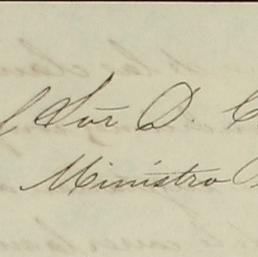 Sor D.
Ministro